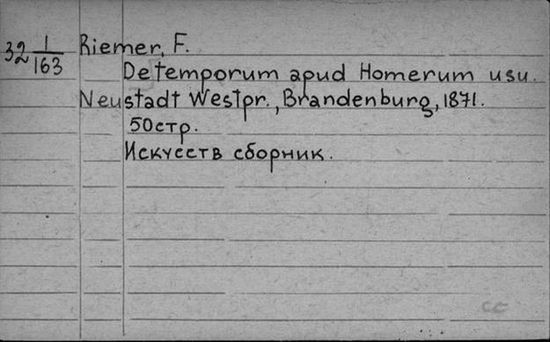 32 1/163 Riemer, F.
De temporum apud Homerum usu.
Neustadt Westpr., Brandenburg, 1871.
50стр.
Искусств сборник.
сс